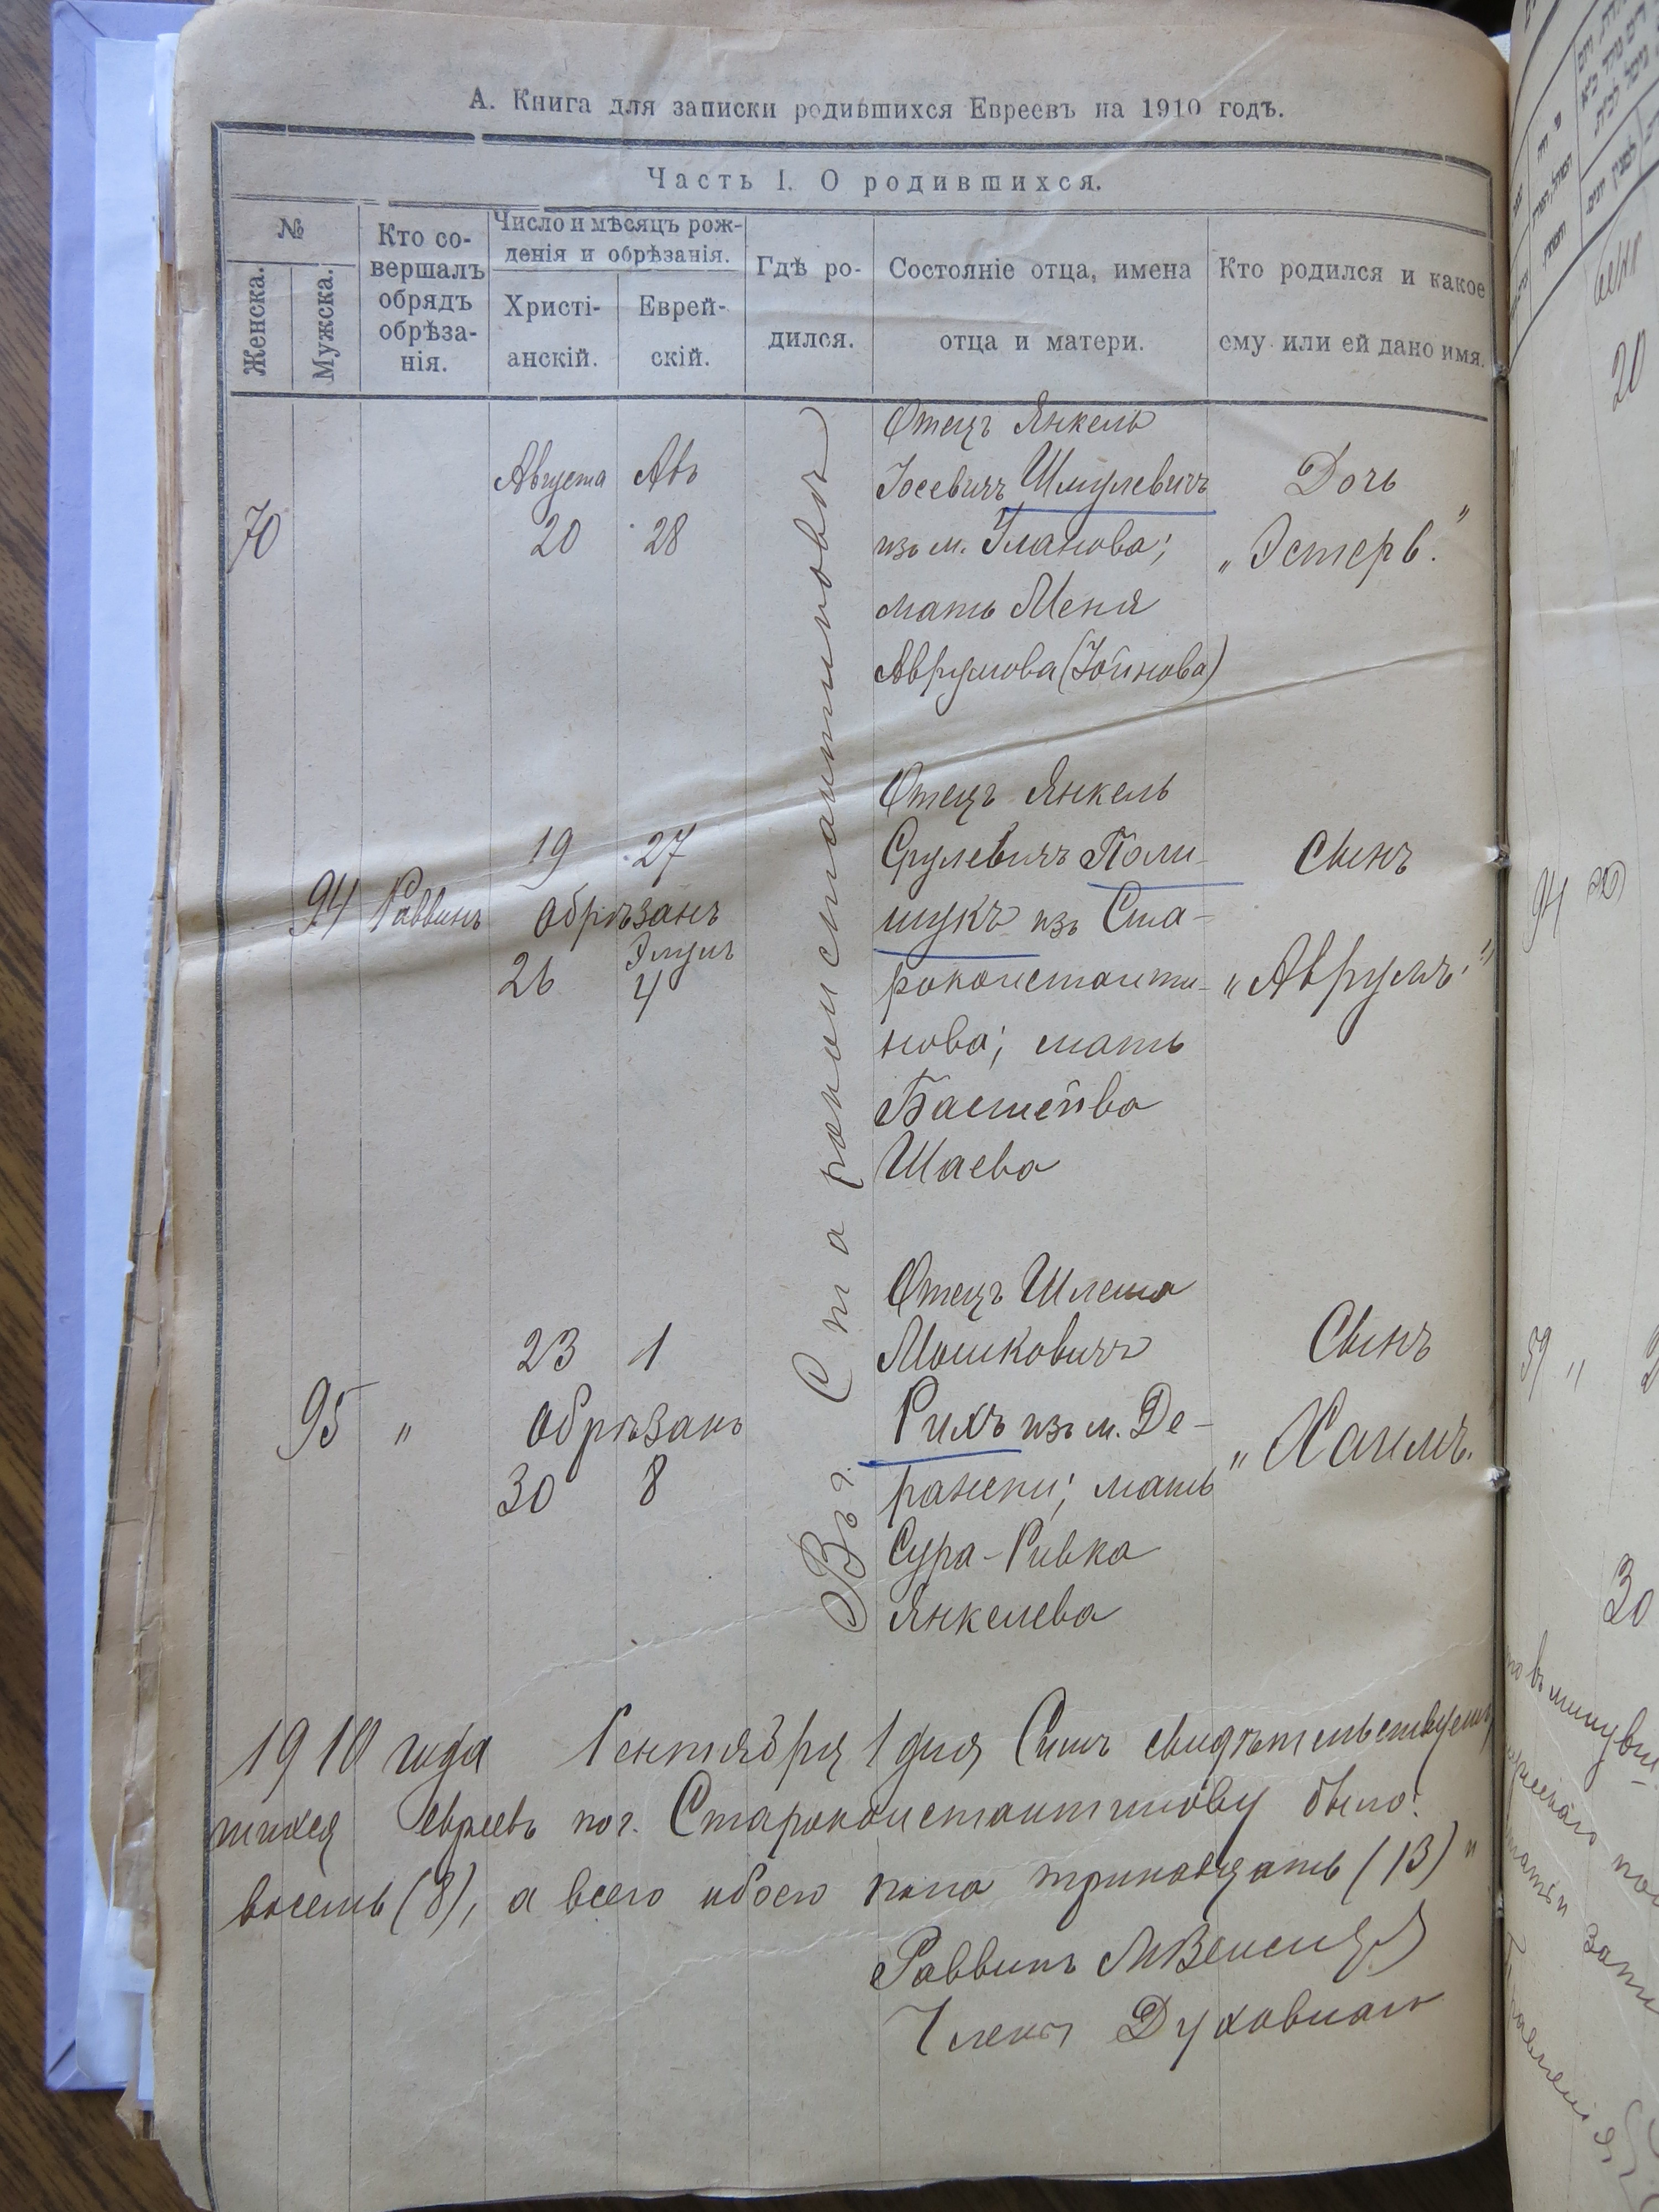 А. Книга для записки родившихся Евреевъ на 1910 годъ.
Часть I. О родившихся.
№
Женска.
Мужска.
Кто со-
вершалъ
обрядъ
обрѣза-
нія.
Число и мѣсяцъ рож-
денія и обрѣзанія.
Христі-
анскій.
Еврей-
скій.
Гдѣ ро-
дился.
Состояніе отца, имена
отца и матери.
Кто родился и какое
ему или ей дано имя.
Въ г. Староконстантиновѣ
70
Августа Авъ
20 28
Отецъ Янкель
Іосевичъ Шмулевичъ
изъ м. Уланова;
мать Меня
Аврумова (Іойнова)
Дочь
„Эстеръ."
94 Раввинъ
19 27
Обрѣзанъ
Элулъ
26 4
Отецъ Янкель
Срулевичъ Поли-
щукъ изъ Ста-
роконстанти-
нова; мать
Басшейва
Шаева
Сынъ
„Аврумъ."
95 "
23 1
Обрѣзанъ
30 8
Отецъ Шлема
Мошковичъ
Рихъ изъ м. Де-
ражни; мать
Сура-Ривка
Янкелева
Сынъ
„Хаимъ.
1910 года Сентября 1 дня Симъ свидѣтельствуемъ
шихся Евреевъ по г. Староконстантинову было:
восемь (8), а всего обоего пола тринадцать (13)"
Раввинъ
Члены Духовнаго
94
20
30